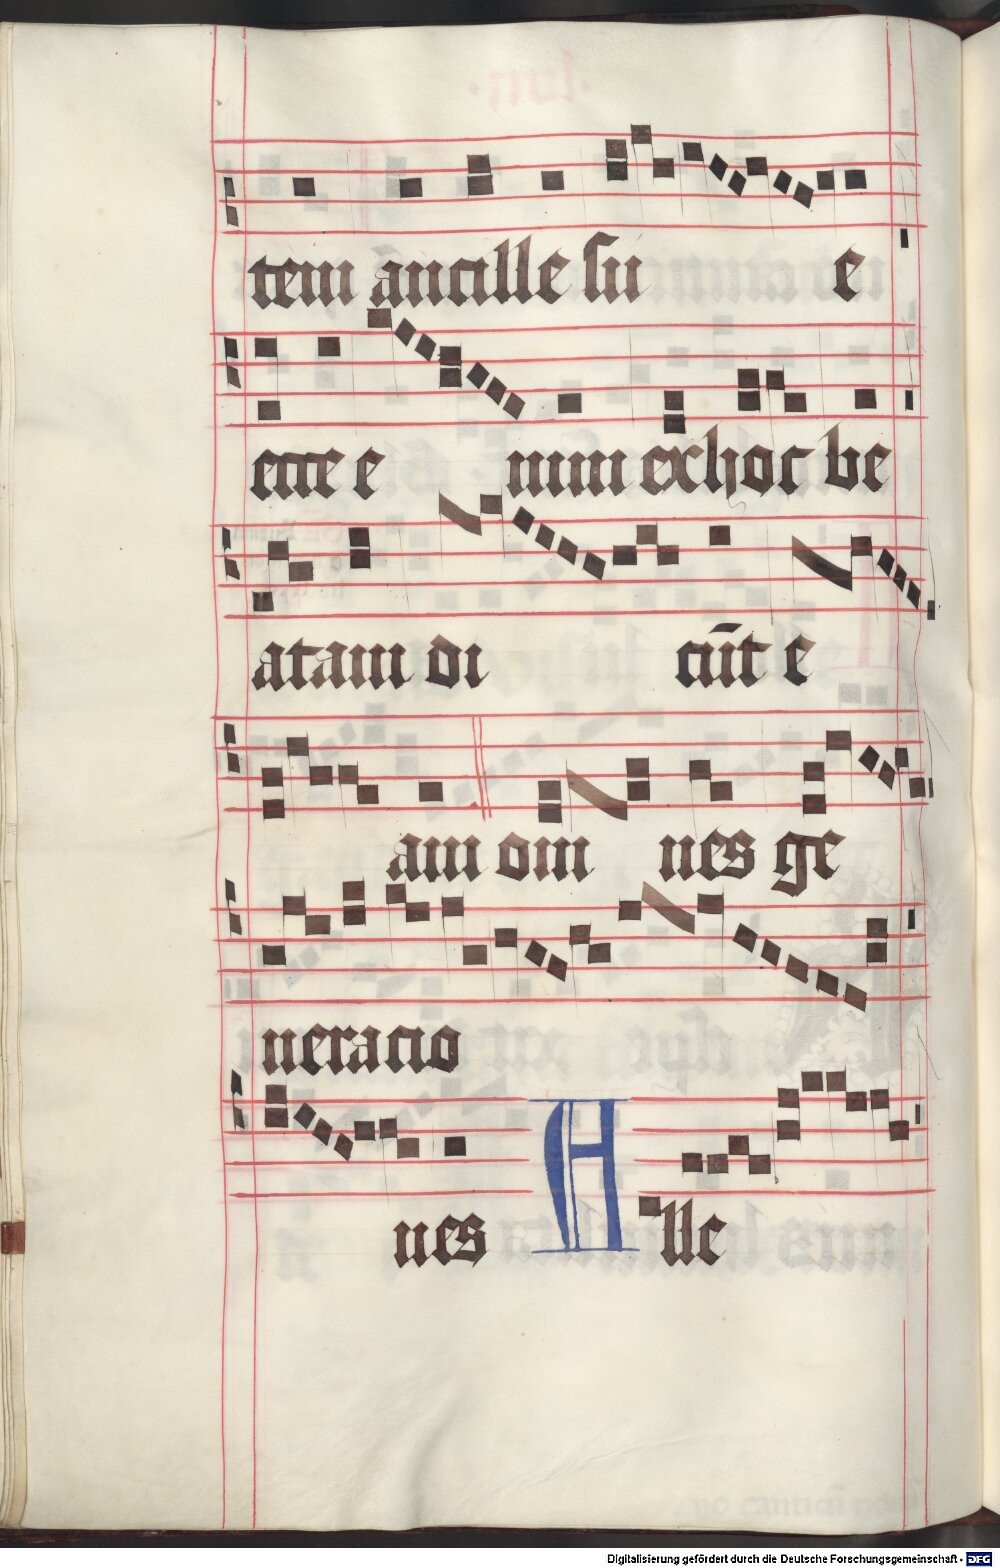 tem ancille su e
ecce e nim ex hoc be
atam di cu̅t e
am om nes ge
neracio
nes Alle
Digitalisierung gefördert durch die Deutsche Forschungsgemeinschaft - DFG